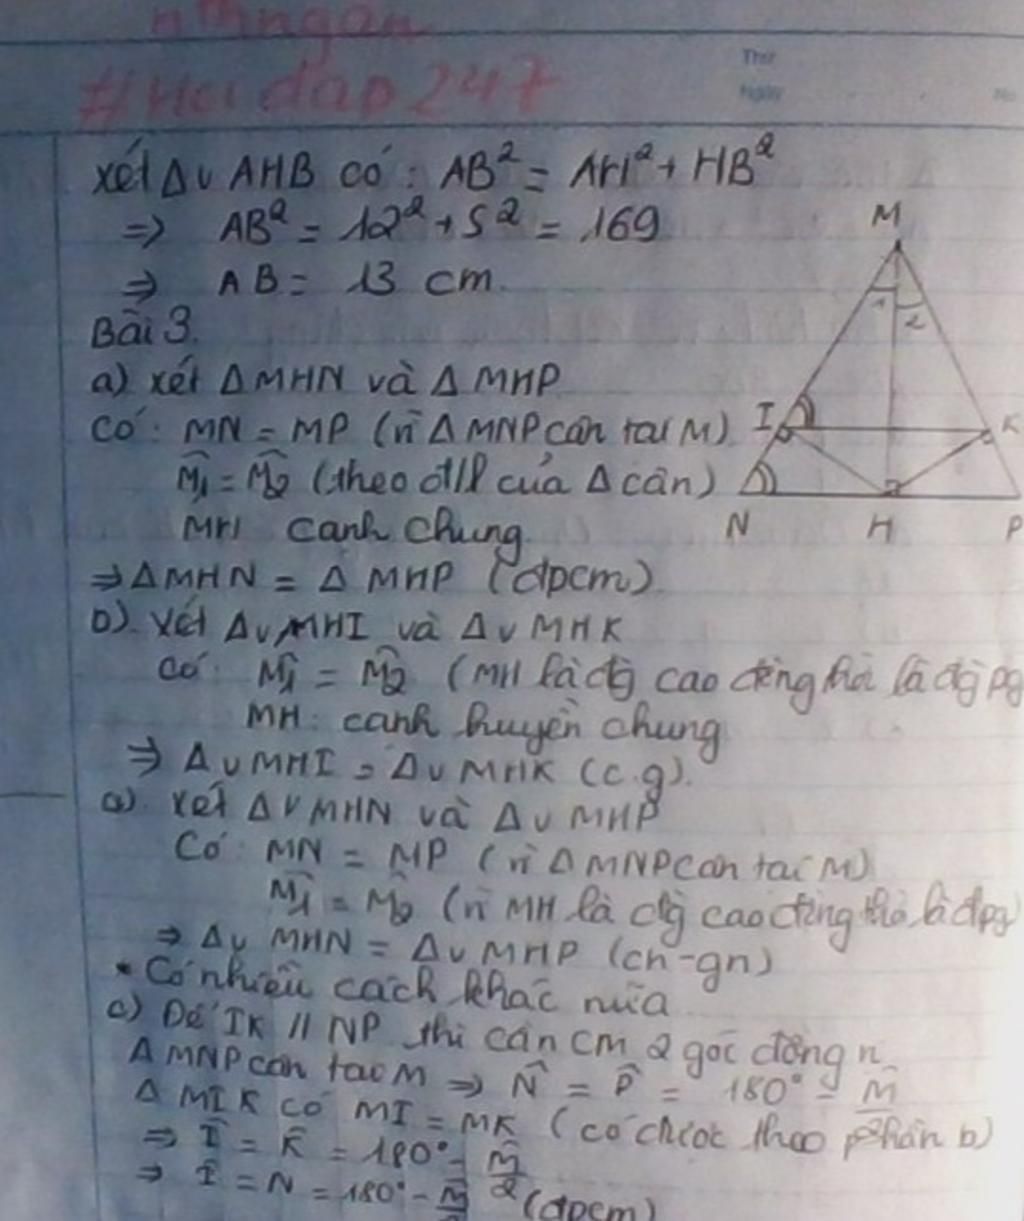 nthngan
#Hoidap247
Thứ
Ngày
No
Xét ΔV AHB có : AB² = AH² + HB²
=> AB² = 12² + 5² = 169
=> AB = 13 cm.
M
1 2
I K
N H P
Bài 3.
a) xét ΔMHN và ΔMHP
Có : MN = MP (vì ΔMNP cân tại M)
M̂1 = M̂2 (theo đ/l của Δ cân)
MH cạnh chung
=> ΔMHN = ΔMHP (đpcm)
b) Xét ΔV MHI và ΔV MHK
Có : M̂1 = M̂2 (MH là đg cao đồng thời là đg pg
MH : cạnh huyền chung
=> ΔV MHI = ΔV MHK (c.g).
a) Xét ΔV MHN và ΔV MHP
Có : MN = MP (vì ΔMNP cân tại M)
M̂1 = M̂2 (vì MH là đg cao đồng thời là đpg)
=> ΔV MHN = ΔV MHP (ch-gn)
* Có nhiều cách khác nữa
c) Để IK // NP thì cần CM 2 góc đồng
ΔMNP cân tại M => N̂ = P̂ = 180° - M̂
ΔMIK có MI = MK (có được theo phần b)
=> Î = K̂ = 180° - M̂/2
=> Î = N = 180° - M̂
(đpcm)